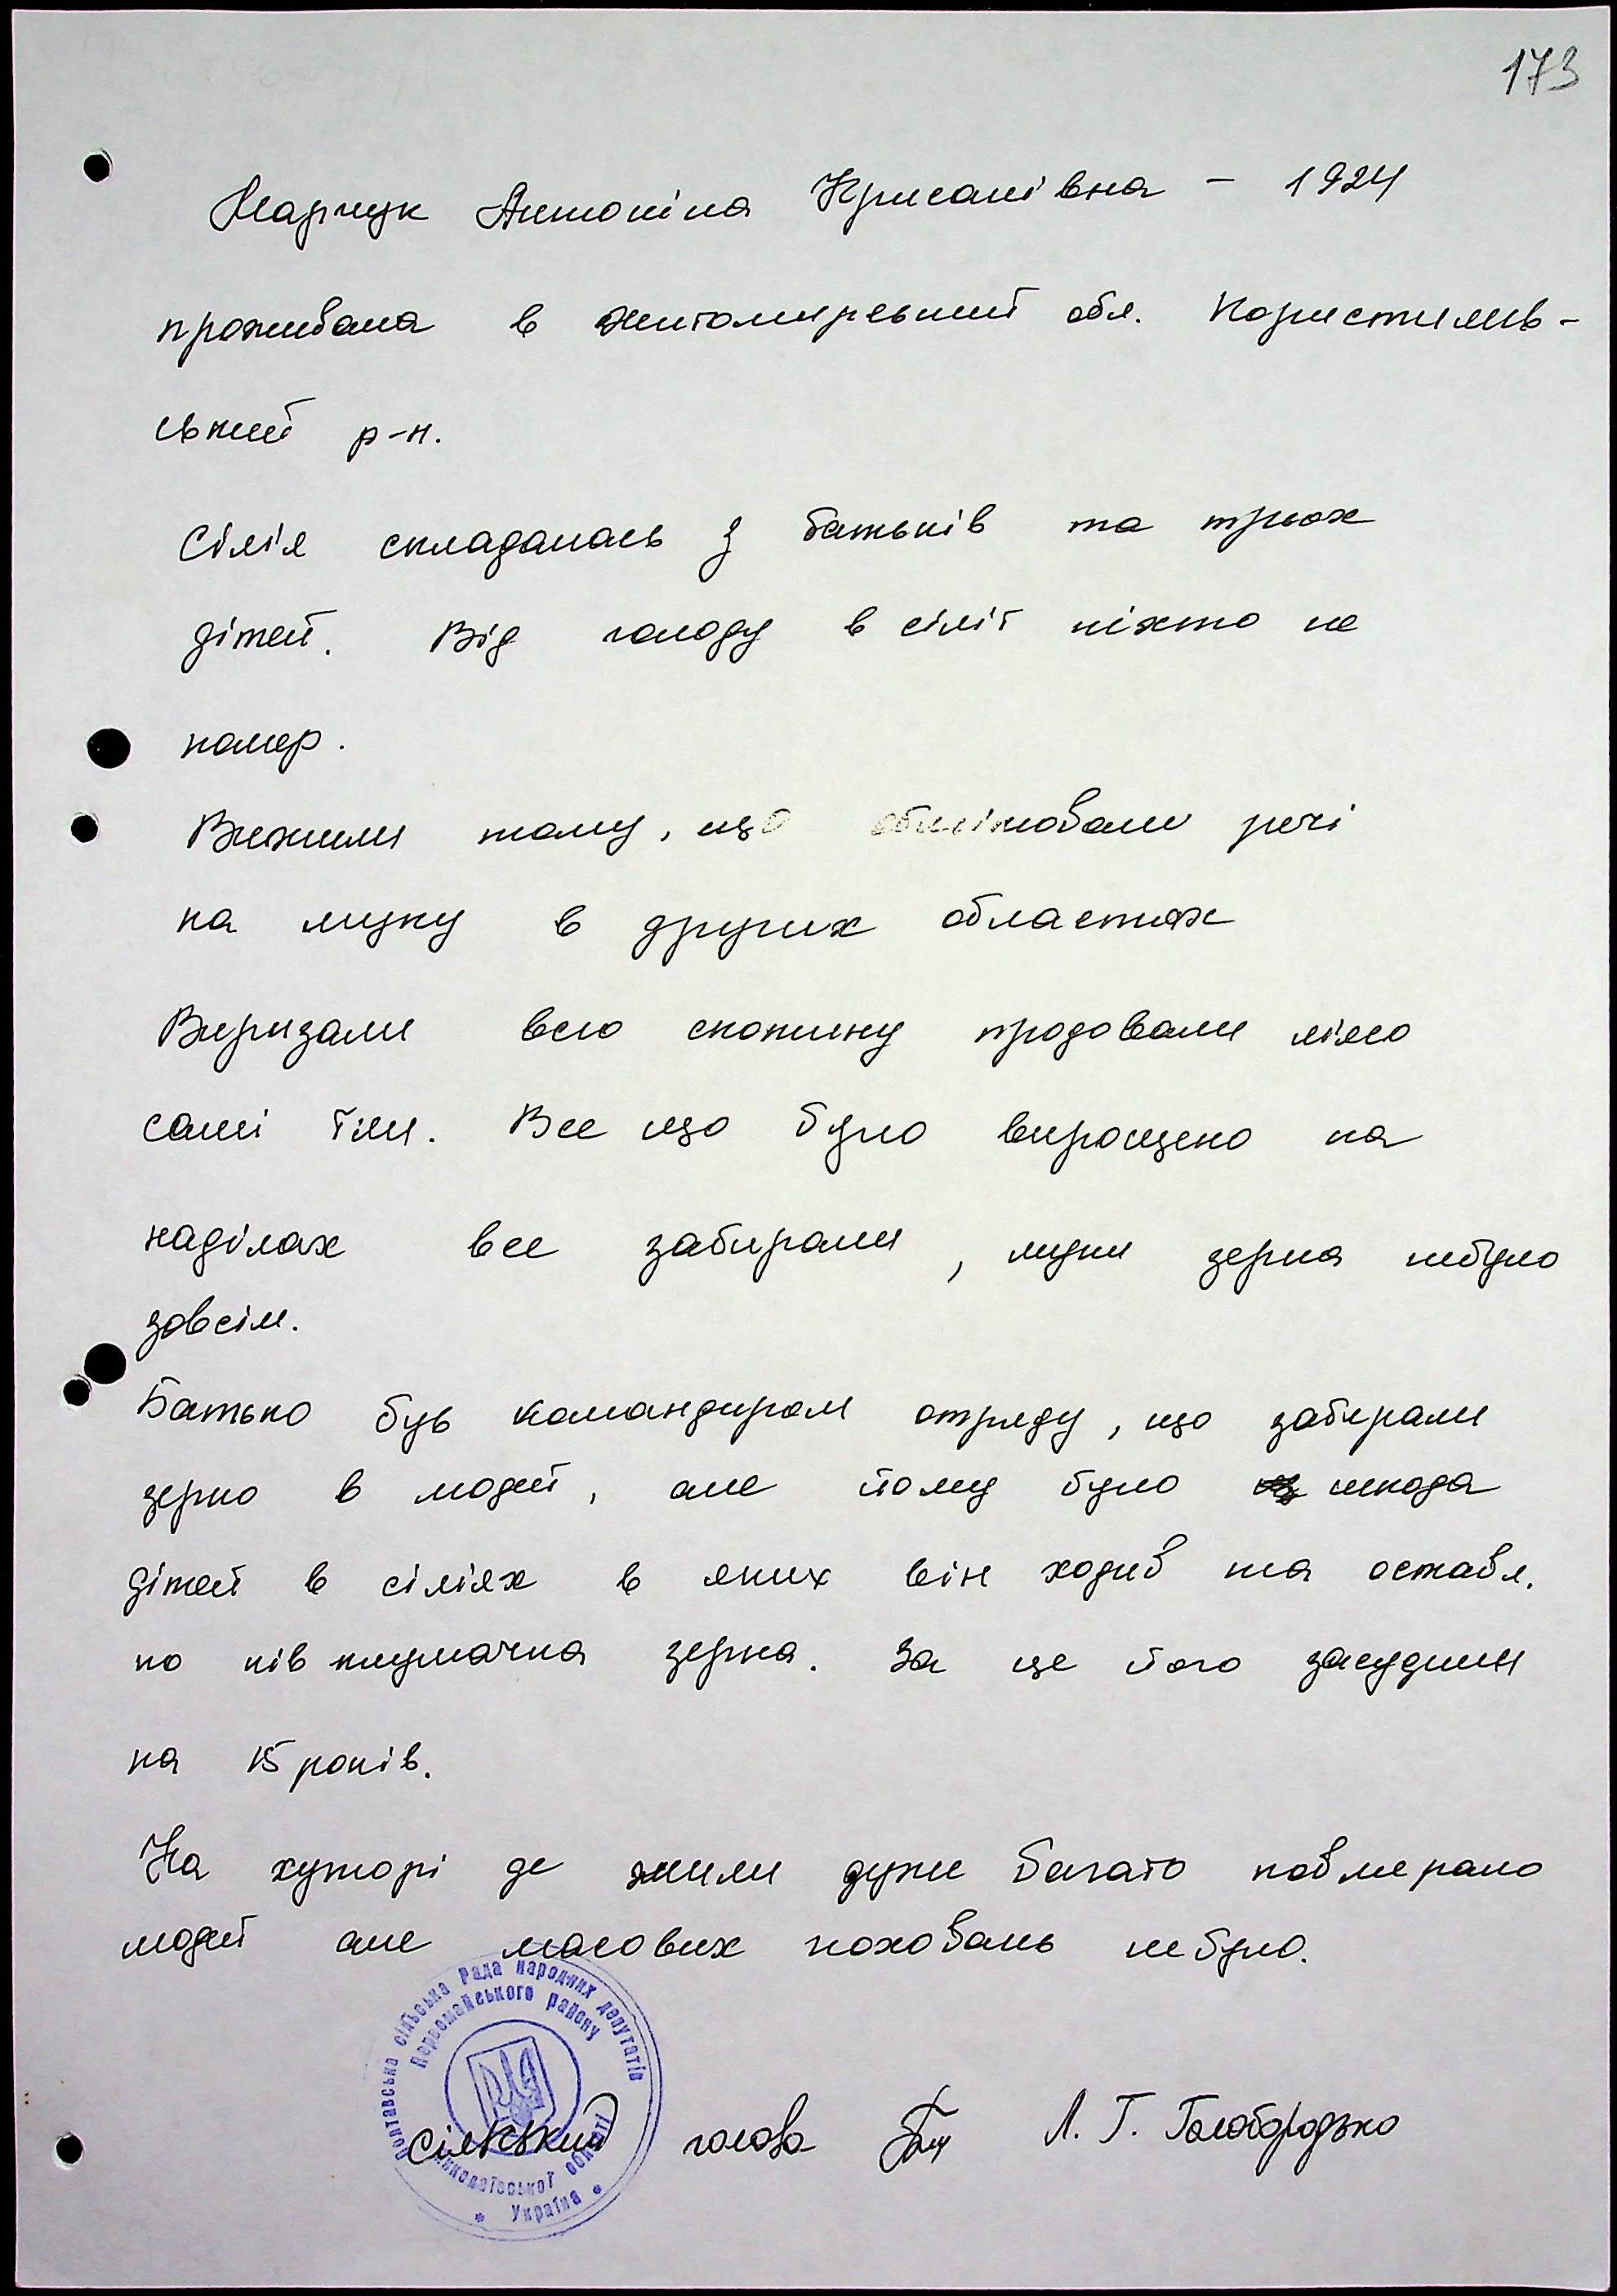 173
Марчук Антоніна Крисанівна – 1924
проживала в Житомирський обл. Користишів-
ський р-н.
Сімія складалась з батьків та трьох
дітей. Від голоду в сімії ніхто не
помер.
Вижили тому, що обмінювали речі
на муку в других областях
Виризали всю скотину продовали мясо
самі їли. Все що було вирощено на
наділах все забирали, муки зерна небуло
зовсім.
Батько був командиром отряду, що забирали
зерно в людей, але йому було шкода
дітей в сіміях в яких він ходив та оставл.
по пів клумачка зерна. За це його засудили
на 15 років.
На хуторі де жили дуже багато повмерало
людей але масових поховань небуло.
Полтавська сільська Рада народних депутатів
Первомайського району
Миколаївської області
* Україна *
сільський голова Л. Г. Голобородько